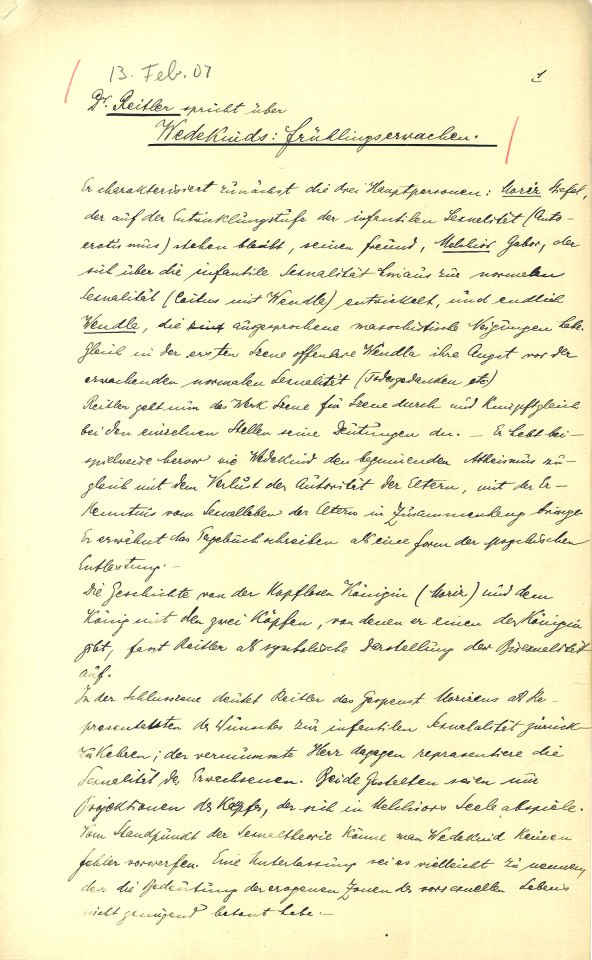 13. Feb. 07
1
Dr. Reitler spricht über
Wedekinds: Frühlingserwachen.
Er charakterisiert zunächst die drei Hauptpersonen: Moriz Stiefel,
der auf der Entwicklungstufe der infantilen Sexualität (Auto-
erotismus) stehen bleibt, seinen Freund, Melchior Gabor, der
sich über die infantile Sexualität hinaus zur normalen
Sexualität (Coitus mit Wendla) entwickelt, und endlich
Wendla, die ausgesprochene masochistische Neigungen habe.
Gleich in der ersten Szene offenbare Wendla ihre Angst vor der
erwachenden normalen Sexualität (Todesgedanken etc)
Reitler geht nun das Werk Szene für Szene durch und knüpft gleich
bei den einzelnen Stellen seine Deutungen an. — Er hebt bei-
spielweise hervor wie Wedekind den beginnenden Atheismus zu-
gleich mit dem Verlust der Autorität der Eltern, mit der Er-
kenntnis vom Sexualleben der Eltern in Zusammenhang bringe.
Er erwähnt das Tagebuchschreiben als eine Form der psychischen
Entlastung. —
Die Geschichte von der Kopflosen Königin (Moriz) und dem
König mit den zwei Köpfen, von denen er einen der Königin
gibt, fasst Reitler als symbolische Darstellung der Bisexualität
auf.
In der Schlussszene deutet Reitler das Gespenst Morizens als Re-
präsentanten des Wunsches zur infantilen Sexualität zurück-
zukehren; der vermummte Herr dagegen repräsentiere die
Sexualität des Erwachsenen. Beide Gestalten seien nur
Projektionen des Kampfes, der sich in Melchiors Seele abspiele.
Vom Standpunkt der Sexualtheorie könne man Wedekind keinen
Fehler vorwerfen. Eine Unterlassung sei es vielleicht zu nennen,
dass er die Bedeutung der erogenen Zonen des vorsexuellen Lebens
nicht genügend betont habe. —